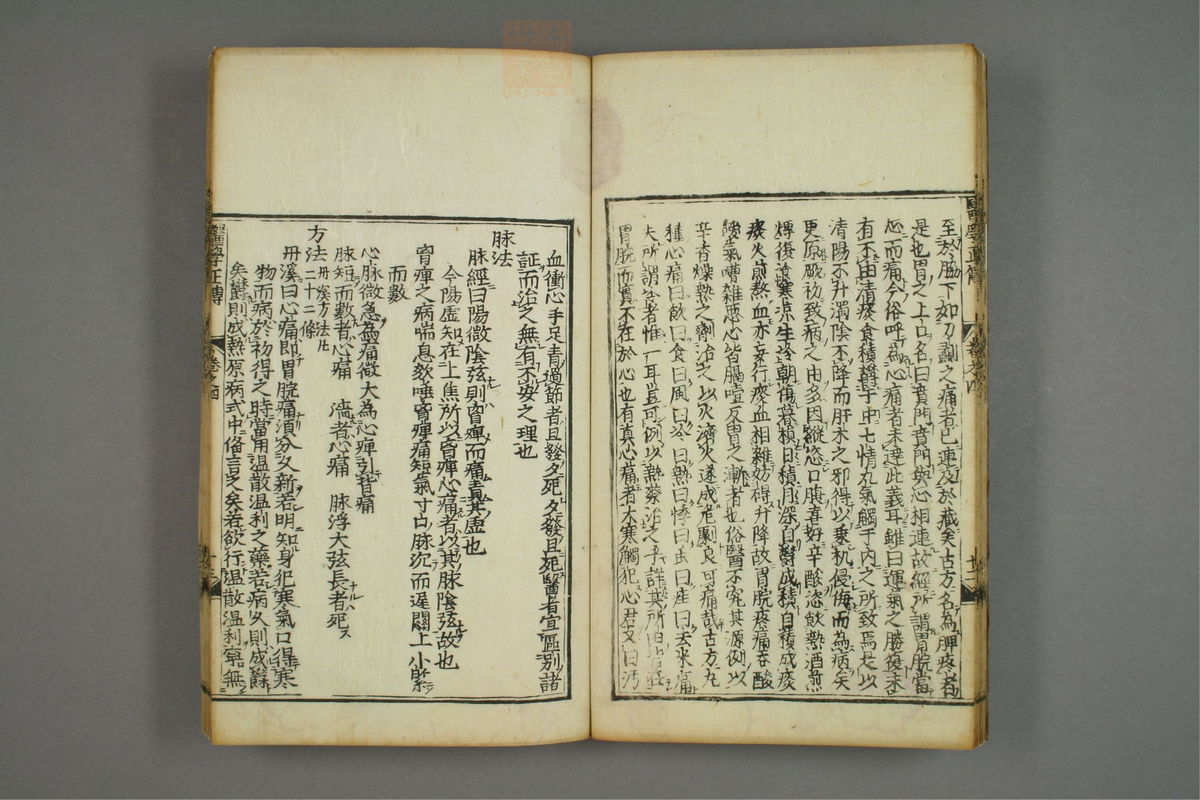 至於脇下如刀劙之痛者已連及於藏矣古方名為脾疼者
是也胃之上口名曰賁門賁門與心相連故經所謂胃脘當
心而痛今俗呼為心痛者未達此義耳雖曰運氣之勝復未
有不由清痰食積鬱于中七情九氣觸于內之所致焉是以
清陽不升濁陰不降而肝木之邪得以乗机侵侮而為病矣
更原厥初致病之由多因縱恣口腹喜好辛酸恣飲熱酒煎
煿復飡寒凉生冷朝傷暮損日積月深自鬱成積自積成痰
痰火煎熬血亦妄行痰血相雜妨碍升降故胃脘疼痛吞酸
噯氣嘈雜悪心皆膈噎反胃之漸者也俗醫不究其源例以
辛香燥熱之劑治之以火濟火遂成危劇良可痛哉古方九
種心痛曰飲曰食曰風曰冷曰熱曰悸曰虫曰疰曰去來痛
夫所謂冷者惟一耳豈可例以熱藥治之乎詳其所由皆在
胃脘而實不在於心也有真心痛者大寒觸犯心君又曰汚
血衝心手足青過節者旦發夕死夕發旦死醫者宜區別諸
証而治之無有不安之理也
脉法
脉經曰陽微陰弦則胷痺而痛責其虚也
今陽虚知在上焦所以胷痺心痛者以其脉陰弦故也
胷痺之病喘息欬唾胷痺痛短氣寸口脉沉而遅關上小緊
而數
心脉微急為痛微大為心痺引背痛
脉短而數者心痛 濇者心痛 脉浮大弦長者死
方法 丹溪方法凡二十二條
丹溪曰心痛即胃脘痛須分久新若明知身犯寒氣口得寒
物而病於初得之時當用温散温利之藥若病久則成欝
矣欝則成熱原病式中備言之矣若欲行温散温利寧無
醫學正傳 卷之四
醫學正傳 卷之四